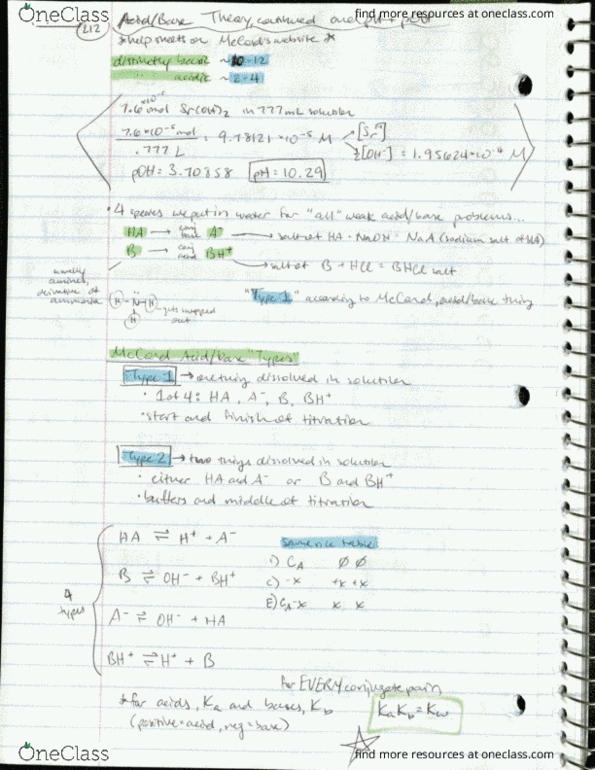 OneClass
find more resources at oneclass.com
212
Acid/Base Theory, continued and pH + pOH
*help sheets on McCord's website*
distinctly basic ~10-12
" acidic ~2-4
7.6×10⁻⁵ mol Sr(OH)₂ in 777mL solution
7.6×10⁻⁵ mol / .777 L = 9.78121×10⁻⁵ M
[Sr²⁺]
½[OH⁻] = 1.95624×10⁻⁴ M
pOH = 3.70858 pH = 10.29
• 4 species we put in water for "all" weak acid/base problems...
HA → conj base A⁻ → salt of HA + NaOH = NaA (sodium salt of HA)
B → conj acid BH⁺ → salt of B + HCl = BHCl salt
usually amines, derivative of ammonia
H-N-H
H
gets swapped out
"Type 1" according to McCord, acid/base thing
McCord Acid/base "Types"
Type 1 → one thing dissolved in solution
• 1 of 4: HA, A⁻, B, BH⁺
• start and finish of titration
Type 2 → two things dissolved in solution
• either HA and A⁻ or B and BH⁺
• buffers and middle of titration
4 types
HA ⇌ H⁺ + A⁻
B ⇌ OH⁻ + BH⁺
A⁻ ⇌ OH⁻ + HA
BH⁺ ⇌ H⁺ + B
same ice table
I) C_A Ø Ø
C) -x +x +x
E) C_A-x x x
for EVERY conjugate pair
* for acids, Ka and bases, Kb
(positive=acid, neg=base)
KaKb = Kw
OneClass
find more resources at oneclass.com